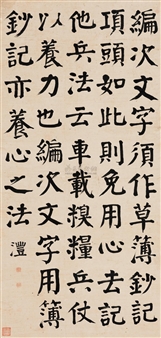 編次文字須作草簿鈔記
項頭如此則免用心去記
他兵法云車載糗糧兵仗
以養力也編次文字用簿
鈔記亦養心之法 澧